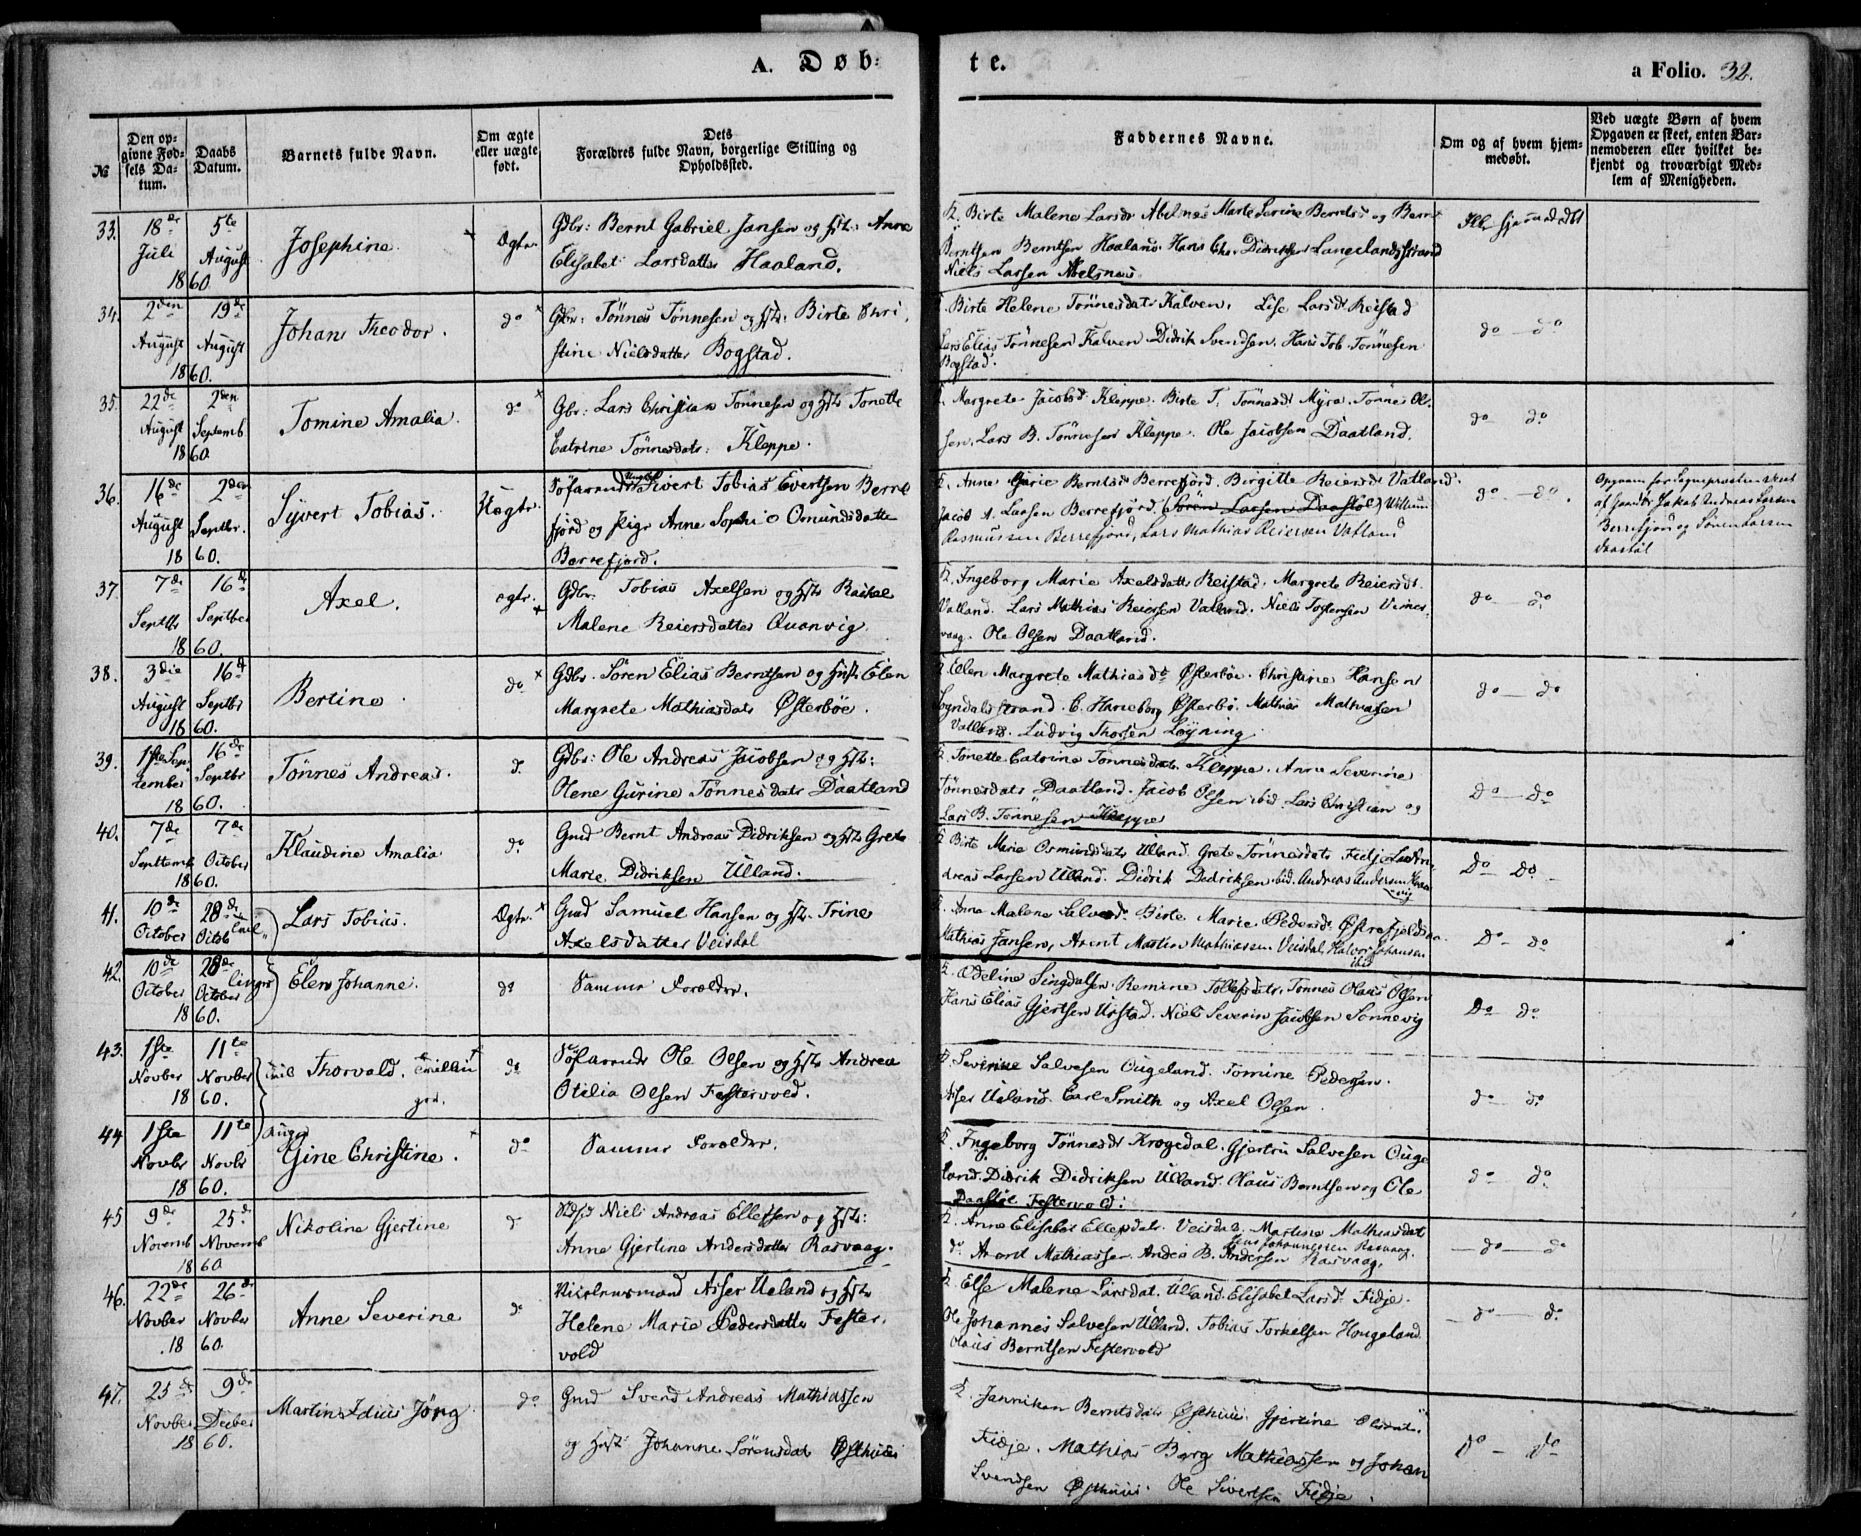 A. Døb= te.
a Folio. 32.
№
Den op-
givne Fød-
sels Da-
tum.
Daabs
Datum.
Barnets fulde Navn.
Om ægte
eller uægte
født.
Dets
Forældres fulde Navn, borgerlige Stilling og
Opholdssted.
Faddernes Navne.
Om og af hvem hjem-
medøbt.
Ved uægte Børn af hvem
Opgaven er skeet, enten Bar-
nemoderen eller hvilket be-
kjendt og troværdigt Med-
lem af Menigheden.
33. 18de Juli 1860. 5te August
Josephine
Ægte
Gdbr: Bernt Gabriel Jansen og Hst: Anne
Elisabet Larsdatter Haaland.
Birte Malene Larsdr Abelnæs Marte Serine Berntsd og Bernt
Berntsen Berntsen Haaland. Hans Chr. Didriksen Langelandsstrand
Niels Larsen Abelsnæs
Ikke hjemmedøbt
34. 2den August 1860. 19de August
Johan Theodor.
do
Gbr: Tønnes Tønnesen og Hst: Birte Chri,
stine Nielsdatter Bogstad.
Birte Helene Tønnesdatr Kalven. Lise Larsdr Reistad
Lars Elias Tønnesen Kalven Didrik Svendsen, Hans Tob. Tønnesen
Bogstad.
do — do
35. 22de August 1860 2den Septemb
Tomine Amalia.
do
Gbr: Lars Christian Tønnesen og Hst Tonette
Catrine Tønnesdatr: Kleppe.
Margrete Jacobsd Kleppe. Birte T. Tønnesdr Myra. Tønnes Ol-
sen, Lars B. Tønnesen Kleppe. Ole Jacobsen Daatland.
do do
36. 16de August 1860. 2den Septbr.
Syvert Tobias.
Uægte
Søfarende Ungkl Sivert Tobias Evertsen Berre
fjord og Pige Anne Sophie Omundsdatter
Berrefjord.
Anne Marie Berntsd Berrefjord. Birgitte Reiersdr Vatland.
Jacob A. Larsen Berrefjord. (Søren Larsen Daastøl) Willum
Rasmussen Berrefjord, Lars Mathias Reiersen Vatland
do — do.
Opgaven for Sognepræsten skeet
af Jacob Andreas Larsen
Berrefjord og Søren Larsen
Daastøl
37. 7de Septbr 1860. 16de Septber
Axel.
ægte.
Gdbr. Tobias Axelsen og Hst Rachel
Malene Reiersdatter Quanvig.
Ingeborg Marie Axelsdatter Reistad. Margrete Reiersdr.
Vatland. Lars Mathias Reiersen Vatland. Niels Tostensen
vaag. Ole Olsen Daatland.
do — do.
38. 3die August 1860. 16de Septbr
Bertine.
do
Gdbr. Søren Elias Berntsen og Hst Elen
Margrete Mathiasdatr Østerbøe.
Elen Margrete Mathiasdr Østerbøe. Christine Hansen
Sogndalsstrand. C. Haneborg Østerbø. Mathias Mathiassen
Vatland. Ludvig Thorsen Løyning.
do — do
39. 1ste September 1860. 16de Septbr
Tønnes Andreas.
d.
Gdbr: Ole Andreas Jacobsen og Hst:
Olene Gurine Tønnesdatr Daatland
Tonette Catrine Tønnesdatr Kleppe. Anne Severine
Tønnesdatr Daatland. Jacob Olsen ibid. Lars Christian og
Lars B. Tønnesen Kleppe
do — do
40. 7de Septemb 1860. 7de October
Klaudine Amalia
do
Gmd Bernt Andreas Didriksen og Hst Grete
Marie Didriksen Ulland.
Birte Marie Osmundsdatr Ulland. Grete Tønnesdatr Fidje. Lars An
dreas Larsen Ulland. Didrik Dedriksen ibid. Andreas Andersen
do do. -
41. 10de October 28de Octob
Lars Tobias.
Ægte
Gmd Samuel Hansen og Hst. Trine
Axelsdatter Veisdal
Anne Malene Salvesd. Birte Marie Pedersd Østrefjeldsaa
Mathias Jansen, Arent Martin Mathiassen Veisdal, Halvor Johansen
ibid
do - do
42. 10de October 1860. 28de October
Tvil linger
Elen Johanne.
do
Samme Forældre.
Odeline Singdalsen. Remine Tollefsdtr. Tønnes Olaus Olsen
Hans Elias Gjertsen Urstad. Niels Severin Jacobsen Sonnevig
do do.
43. 1ste Novber 1860. 11te Novber
Thorvald. Tvilling
do
Søfarende Ole Olsen og Hst Andrea
Otilia Olsen Festervold.
Severine Salvesen Ougeland. Tomine Pedersen.
Asser Ueland. Carl Smith og Axel Olsen.
do — do
44 1ste Novbr 1860. 11te Novbr
Gine Christine.
do
Samme Forældre.
Ingeborg Tønnesdr Krogedal. Gjertru Salvesen Ouge
land. Didrik Didriksen Ulland. Olaus Berntsen og Ole
Daastøl Festervold.
do — do.
45 9de Novemb 1860 25de Novemb
Nikoline Gjertine
d
Niels Andreas Ellefsen og Hst:
Anne Gjertine Andersdatter Rasvaag.
Anne Elisabet Ellefsdatr. Veisdal. Martine Mathiasdat
do. Arent Mathiassen. Jens Johannesen Rasvaag. Andrea B. Andersen Rasvaag.
— do — do
46. 22de Novber 1860. 26de Novber
Anne Severine
do
Asser Ueland og Hst
Helene Marie Pedersdatter Fester.
vold
Else Malene Larsdat. Ulland. Elisabet Larsd. Fidje.
Ole Johannes Salvesen Ulland. Tobias Torkelsen Hougeland.
Olaus Berntsen Festervold
— do — do.
47. 25de Novber 1860. 9de Decber
Martin Idius Jörg
do
Gmd Svend Andreas Mathiassen
og Hst: Johanne Sørensdatr Østhuus
Janniken Berntsdatr Østhuus. Gjertine
Fidje. Mathias Borg Mathiassen og Johan
Svendsen Østhuus. Ole Sivertsen Fidje.
do — do